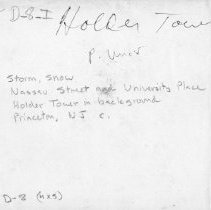 D-8-I Holder Tower
P. Univ
Storm, snow
Nassau Street and University Place
Holder Tower in background
Princeton, NJ c.
D-8 (4x5)